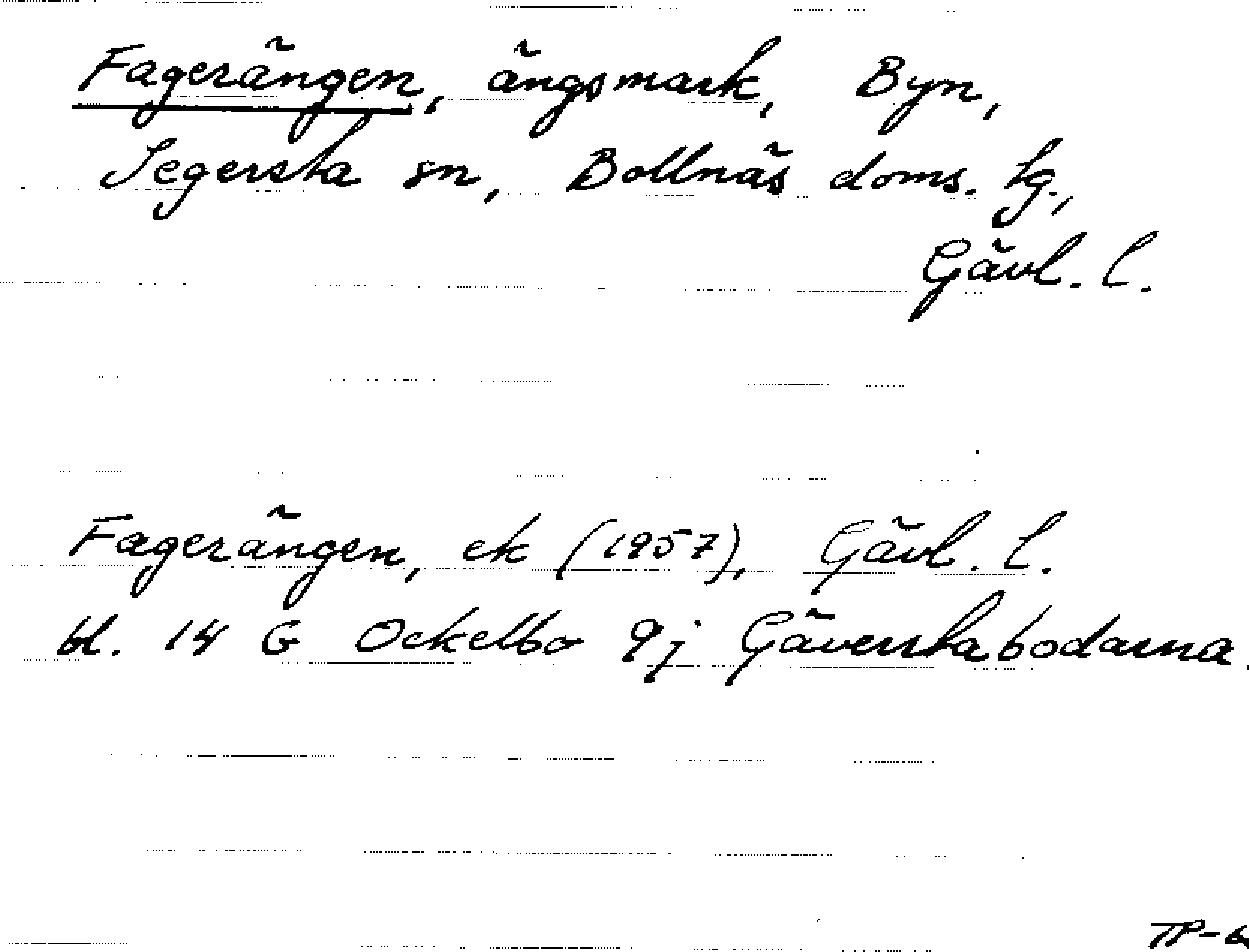 Fagerängen, ängsmark, Byn,
Segersta sn, Bollnäs doms. tg.,
Gävl. l.
Fagerängen, ek (1957), Gävl. l.
bl. 14 G Ockelbo 9j Gäverstabodarna.